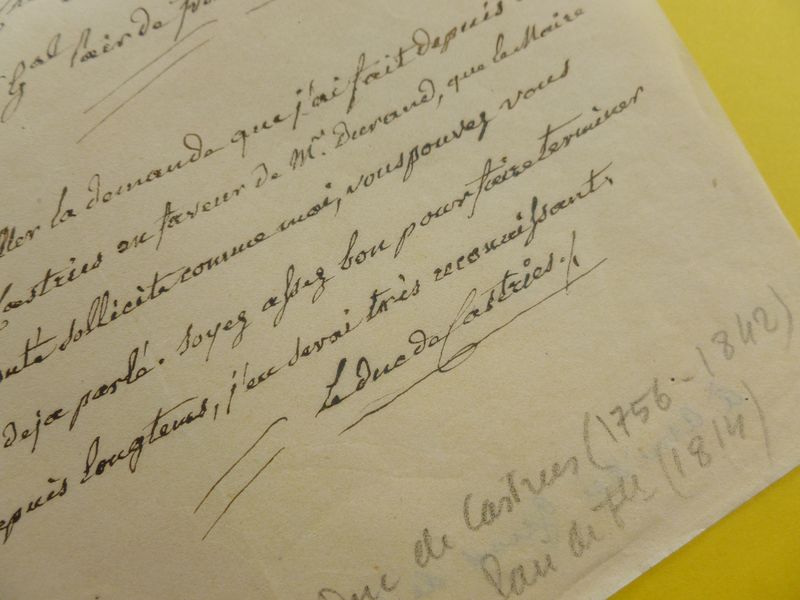 Gal Pair de
ller la demande que j'ai fait depuis
Castries en faveur de Mr. Durand, que le Maire
sollicite comme moi, vous pouvez vous
deja parlé. Soyez assez bon pour faire terminer
epuis longtems, j'en serai très reconaissant,
le duc de Castries.
Duc de Castries (1756-1842)
Pair de Fce (1814)